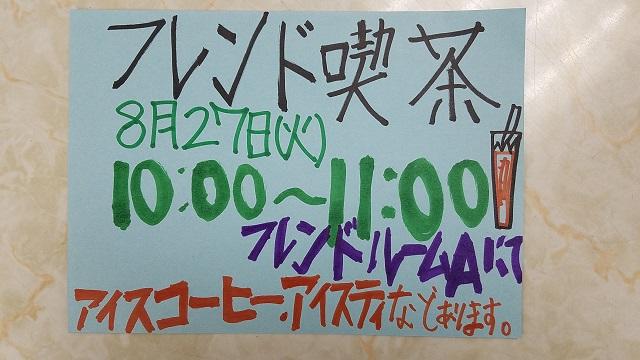 フレンド喫茶
8月27日(火)
10:00〜11:00
フレンドルームAにて
アイスコーヒー、アイスティなどあります。